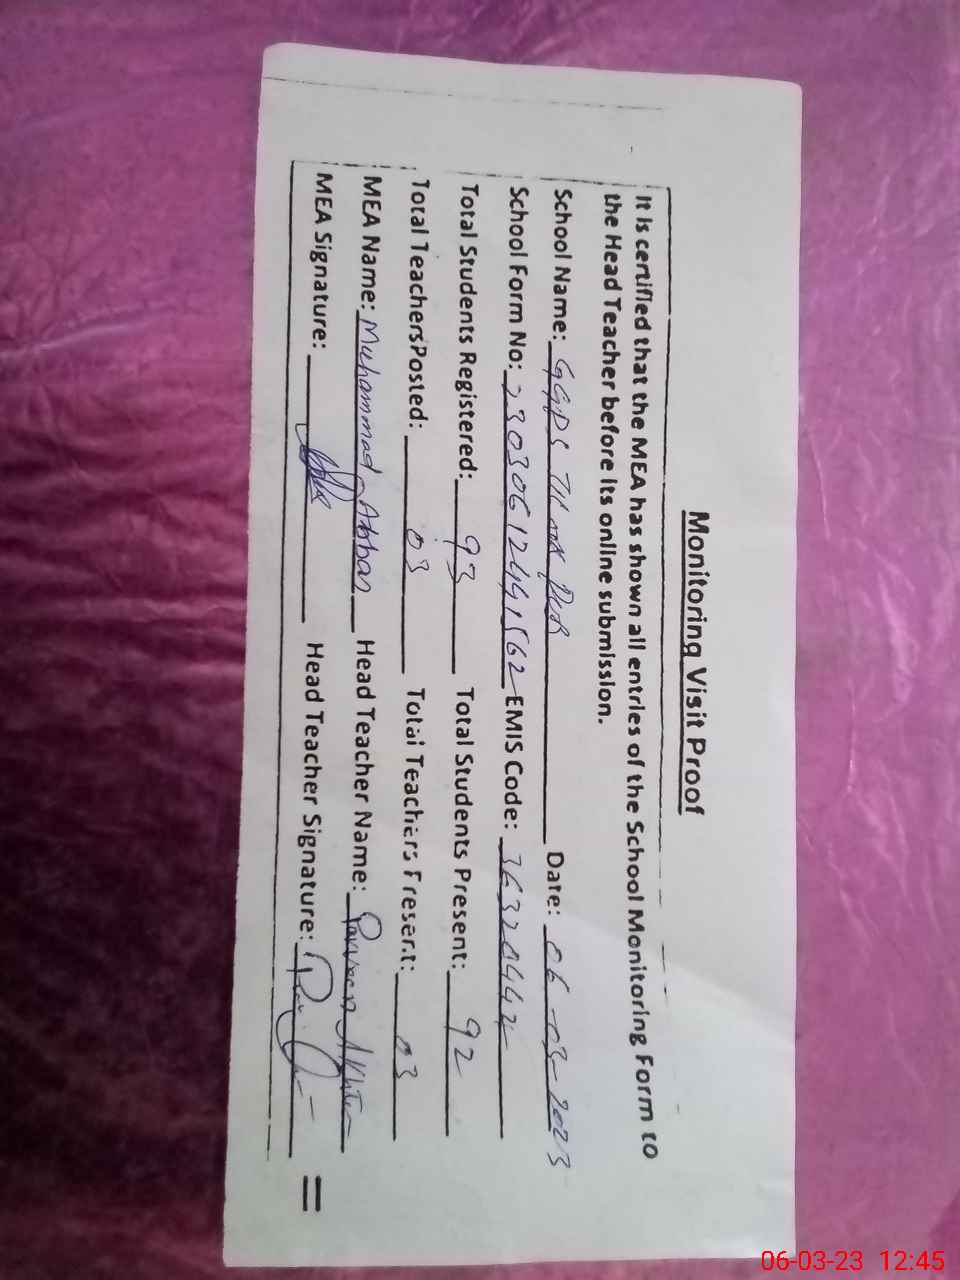 Monitoring Visit Proof
It is certified that the MEA has shown all entries of the School Monitoring Form to
the Head Teacher before its online submission.
School Name: GGPS Date: 06-03-2023
School Form No: EMIS Code:
Total Students Registered: 93 Total Students Present: 92
Total Teachers Posted: 03 Total Teachers Present: 03
MEA Name: Muhammad Abbas Head Teacher Name: Parveen Akhter
MEA Signature: Head Teacher Signature:
06-03-23 12:45